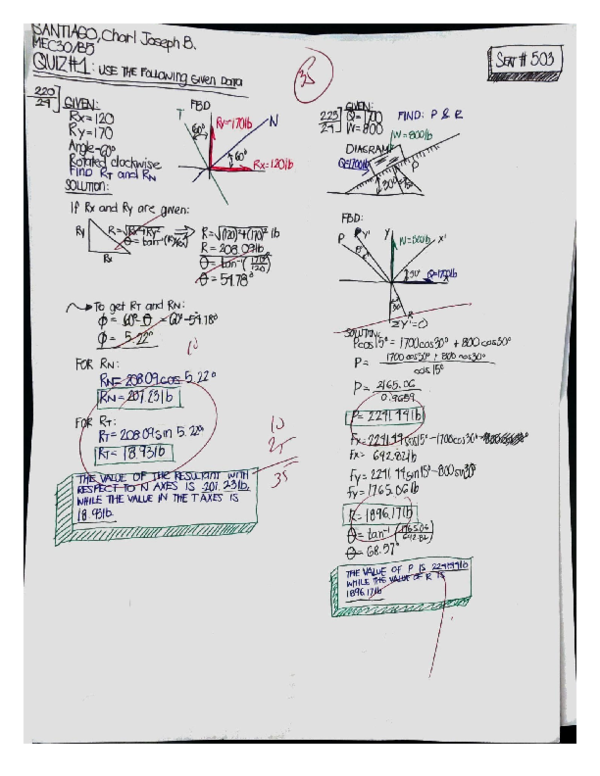 SANTIAGO, Charl Joseph B.
MEC30/B5
QUIZ#1: USE THE FOLLOWING GIVEN DATA
SEAT # 503
35
220/24 GIVEN:
Rx=120
Ry=170
Angle=60°
Rotated clockwise
FIND RT and RN
SOLUTION:
FBD
T
Ry=170lb
N
60°
60°
Rx=120lb
If Rx and Ry are given:
Ry
Rx
R=√Rx²+Ry²
R=√(120)²+(170)² lb
R= 208.09lb
θ= tan⁻¹(170/120)
θ= 54.78°
To get RT and RN:
φ= 60°-θ = 60°-54.78°
φ= 5.22°
10
FOR RN:
RN= 208.09cos 5.22°
RN= 207.23lb
FOR RT:
RT= 208.09sin 5.22°
RT= 18.93lb
10
25
35
THE VALUE OF THE RESULTANT WITH
RESPECT TO N AXES IS 207.23lb.
WHILE THE VALUE IN THE T AXES IS
18.93lb.
GIVEN:
Q=1700
W=800
FIND: P & R
W=800lb
DIAGRAM:
Q=1700lb
P
30°
FBD:
P
Y'
Y
W=800lb
X'
30°
Q=1700lb
R
ΣY'=0
SOLUTION:
Pcos15°= 1700cos30° + 800cos30°
P= 1700cos30° + 800cos30° / cos15°
P= 2165.06 / 0.9659
P= 2241.49lb
Fx= 2241.49cos15°-1700cos30°
Fx= 692.82lb
Fy= 2241.49sin15°-800sin30°
Fy= 1765.06lb
R= 1896.17lb
θ= tan⁻¹(1765.06/692.82)
θ= 68.57°
THE VALUE OF P IS 2241.49lb
WHILE THE VALUE OF R IS
1896.17lb